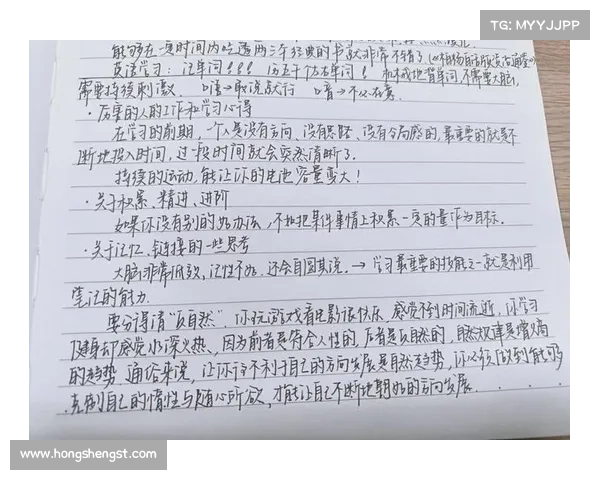 TG: MYYJJPP
能够在一段时间内吃透两三本经典的书就非常不错了
英语学习：记单词！！！历五千左右单词！机械地背单词，不需要大脑，
需要持续刺激.
·厉害的人的工作和学习心得
在学习的前期，一个人是没有方向、没有思路、没有全局感的，最重要的就是不
断地投入时间，过一段时间就会突然清晰了.
持续的运动，能让你的电池容量变大！
·关于积累、精进、进阶
如果你没有别的好办法，不如把某件事情上积累一定的量作为目标.
·关于记忆、链接的一些思考
大脑非常低效，记性不好，还会自圆其说.→学习最重要的技能之一就是利用
笔记的能力.
要分得清“反自然”.你玩游戏看电影很快乐、感觉不到时间流逝，你学习
健身却感觉水深火热、因为前者是符合人性的，后者是反自然的，自然规律是增熵
的趋势.通俗来说，让你往不利于自己的方向发展是自然趋势，你必须做到能够
克制自己的惰性与随心所欲，才能让自己不断地朝好的方向发展.
www.hongshengst.com